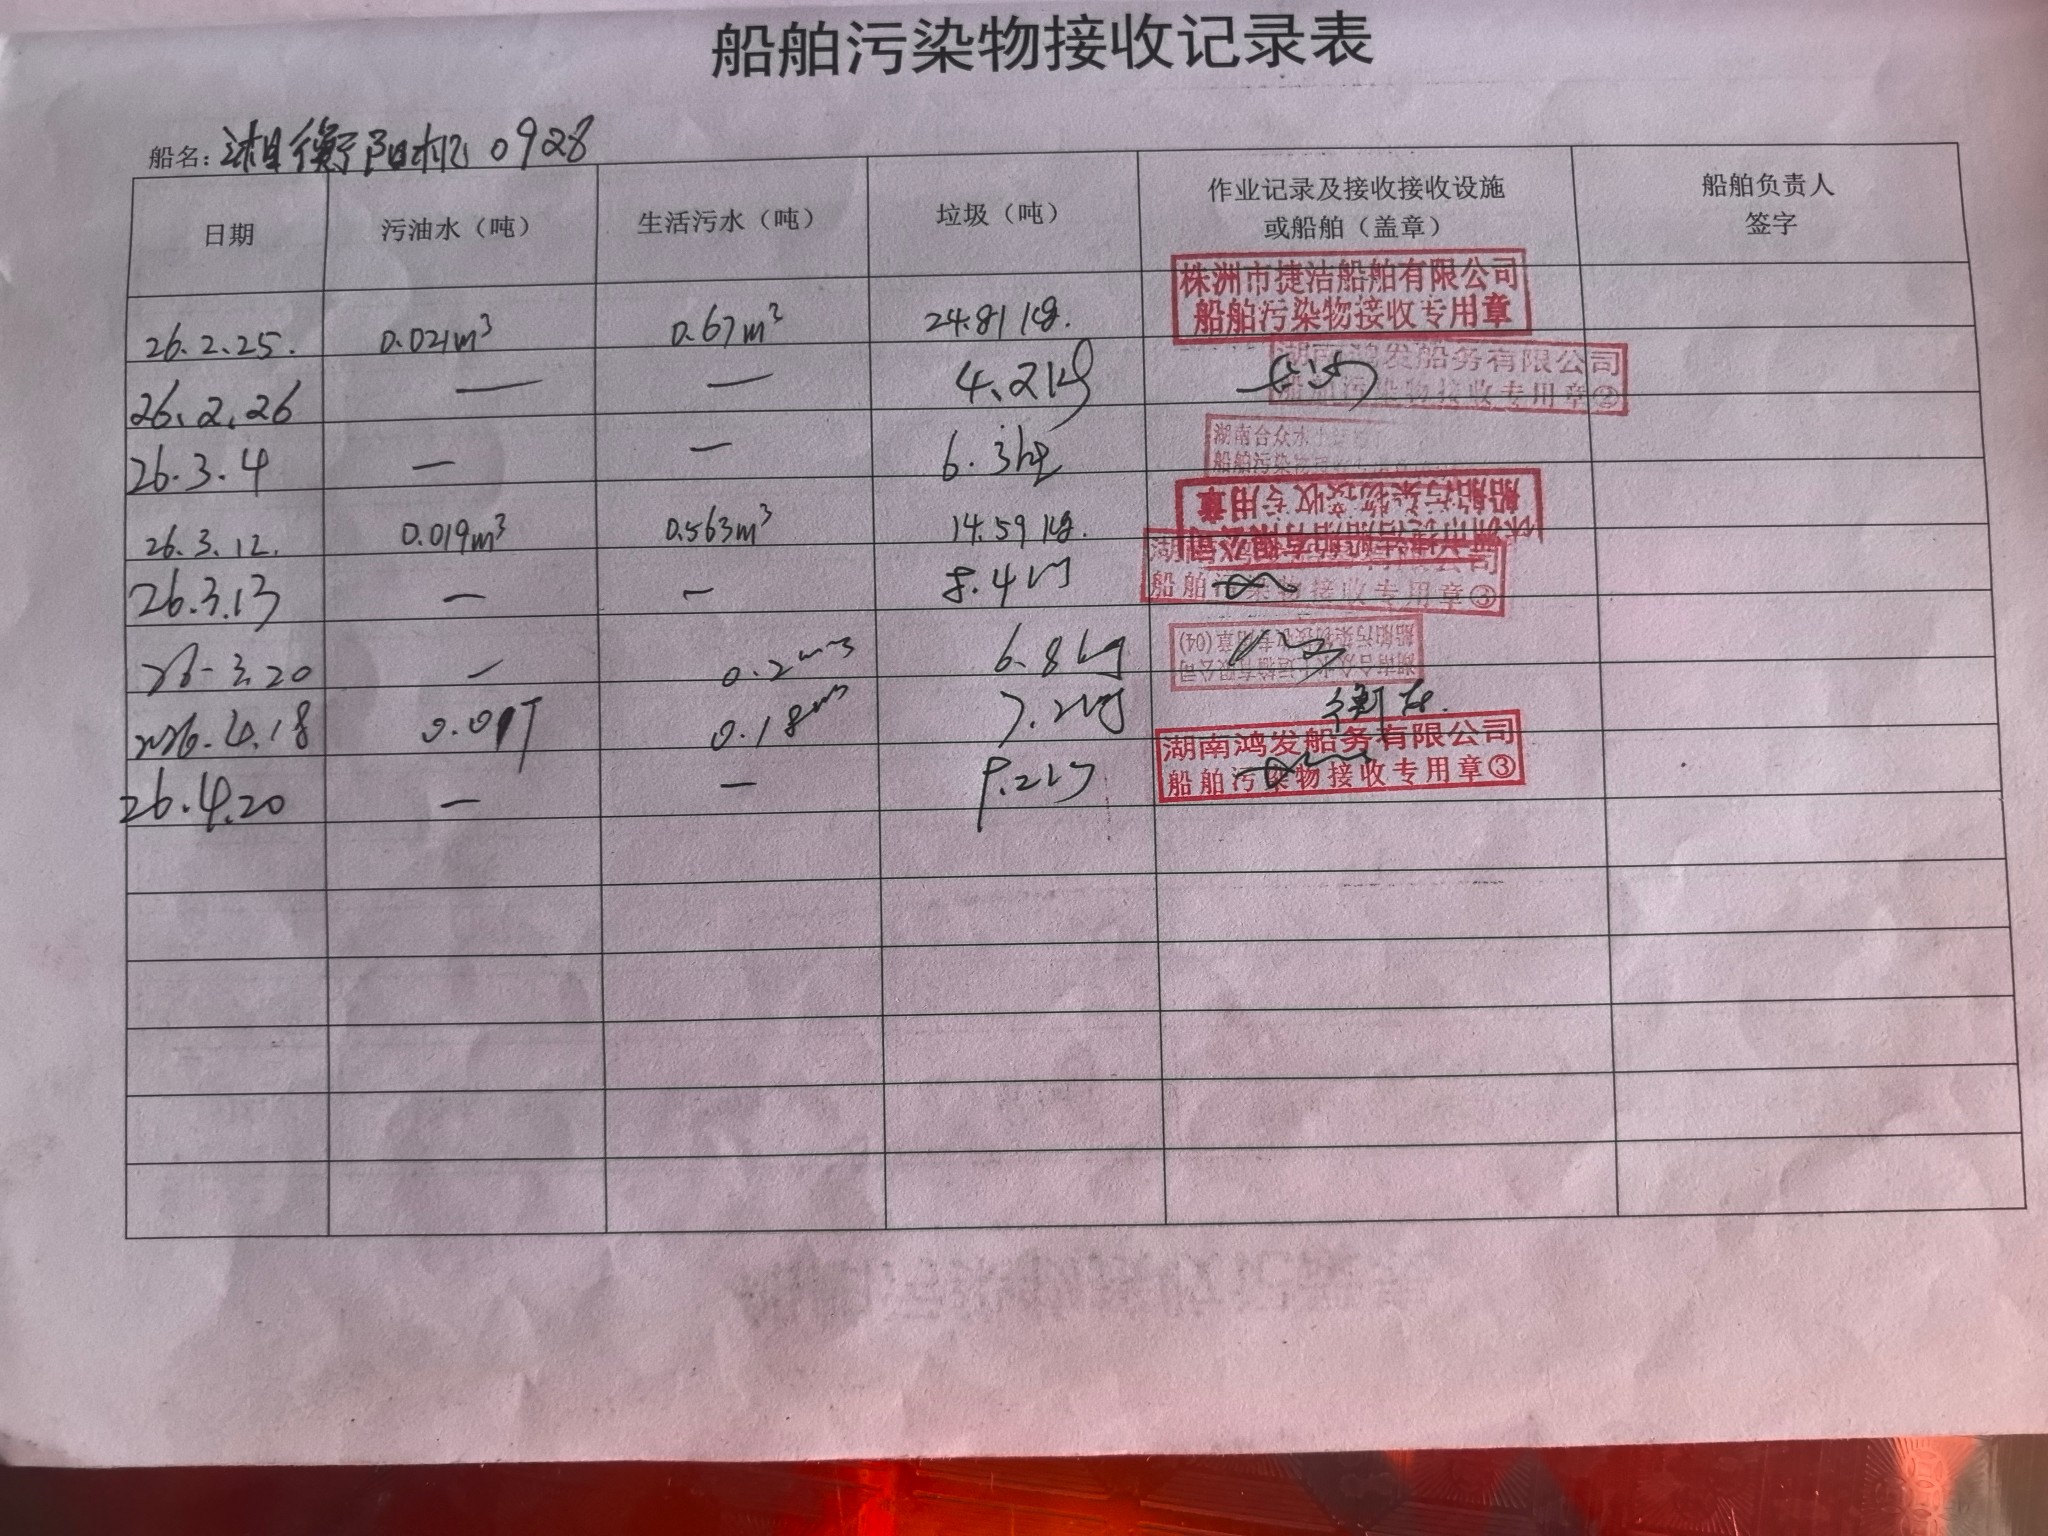 船舶污染物接收记录表
船名：湘衡阳机0928
日期 污油水（吨） 生活污水（吨） 垃圾（吨） 作业记录及接收接收设施或船舶（盖章） 船舶负责人签字
26.2.25. 0.021m³ 0.67m³ 24.81kg. 株洲市捷洁船舶有限公司 船舶污染物接收专用章
26.2.26 — — 4.2kg 湖南鸿发船务有限公司 船舶污染物接收专用章②
26.3.4 — — 6.3kg 湖南合众水 船舶污染
26.3.12. 0.019m³ 0.563m³ 14.59kg. 株洲市捷洁船舶有限公司 船舶污染物接收专用章
26.3.13 — — 8.4kg 湖 公司 船舶污染物接收专用章③
26-3.20 — 0.2m3 6.8kg 湖南合众水上运输有限公司 船舶污染物接收专用章(04)
2026.4.18 0.01T 0.18m3 7.2kg 衡东.
26.4.20 — — 9.2kg 湖南鸿发船务有限公司 船舶污染物接收专用章③